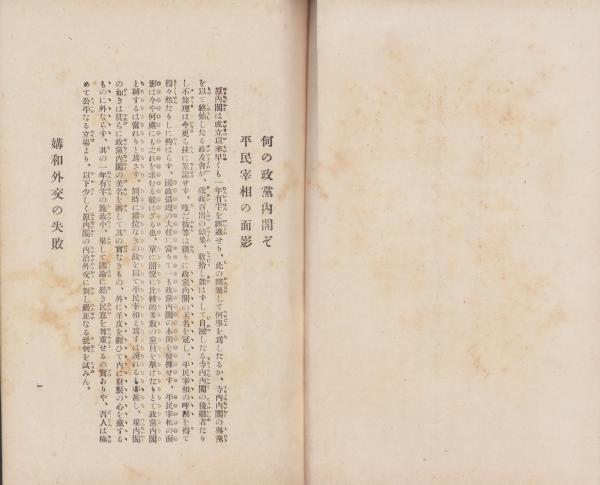 何の政黨內閣ぞ
平民宰相の面影
原內閣は成立以來早くも一年有半を經過せり、此の間果して何事を爲したるか、寺內內閣の與黨
を以て終始したる政友會が、秕政百出の結果、收拾し能はずして自滅したる寺內內閣の後繼者たり
し不條理は今更ら玆に累說せず、唯だ彼等は漫りに政黨內閣の美名を冠し、平民宰相の呼稱を得て
得々然たりしに拘はらず、國政攝理の大任に當りても政黨內閣の本領を發揮せず、平民宰相の面
影は今や何處にも之れを求むる能はざる也、單に閣僚に比較的多數の黨員を擧げたりとて政黨內閣
と稱するは當れりと爲さず、同時に爵位なきの故を以て平民宰相と爲すは誤れるも甚し、現內閣
の如きは徒らに政黨內閣の美名を衒して其の實なきもの、外に羊皮を被ひて內に豺狼の心を藏する
ものに外ならず、其の一年有半の施政中、果して國論に聽き民意を尊重せるの實ありや、吾人は極
めて公平なる立場より、以下少しく原內閣の內治外交に對し嚴正なる批判を試みん。
媾和外交の失敗
一